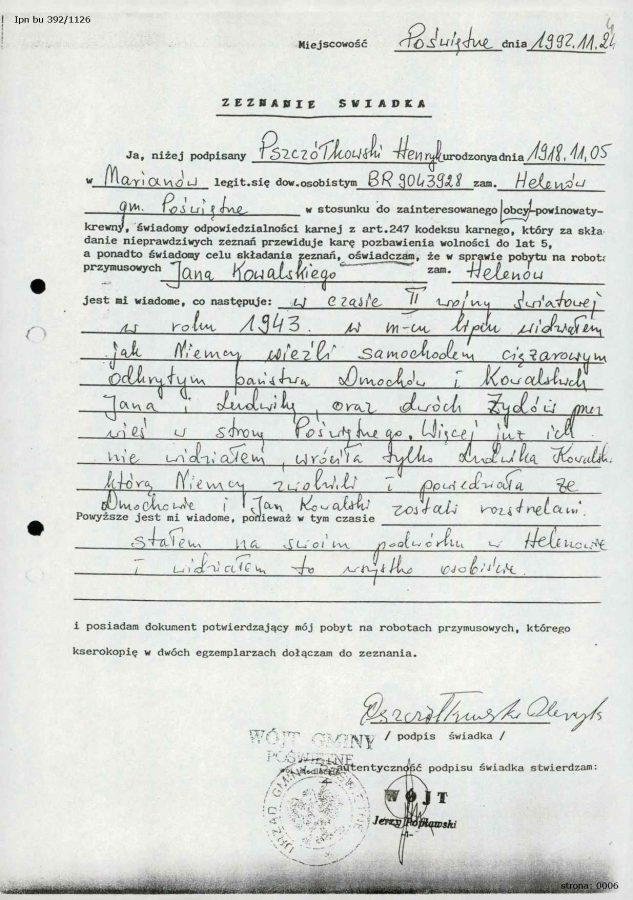 Ipn bu 392/1126
Miejscowość Poświętne dnia 1992.11.24
ZEZNANIE ŚWIADKA
Ja, niżej podpisany Pszczółkowski Henryk urodzonya dnia 1918.11.05
w Marianów legit.się dow.osobistym BR 9043928 zam. Helenów
gm. Poświętne w stosunku do zainteresowanego obcy-powinowaty-
krewny, świadomy odpowiedzialności karnej z art.247 kodeksu karnego, który za skła-
danie nieprawdziwych zeznań przewiduje karę pozbawienia wolności do lat 5,
a ponadto świadomy celu składania zeznań, oświadczam, że w sprawie pobytu na robot
przymusowych Jana Kowalskiego zam. Helenów
jest mi wiadome, co następuje: w czasie II wojny światowej
w roku 1943. w m-cu lipcu widziałem
jak Niemcy wieźli samochodem ciężarowym
odkrytym państwa Dmochów i Kowalskich
Jana i Ludwikę, oraz dwóch Żydów przez
wieś w stronę Poświętnego. Więcej już ich
nie widziałem, wróciła tylko Ludwika Kowalsk
którą Niemcy zwolnili i powiedziała że
Dmochowie i Jan Kowalski zostali rozstrelani.
Powyższe jest mi wiadome, ponieważ w tym czasie
stałem na swoim podwórku w Helenowie
i widziałem to wszystko osobiście.
i posiadam dokument potwierdzający mój pobyt na robotach przymusowych, którego
kserokopię w dwóch egzemplarzach dołączam do zeznania.
Pszczółkowski Henryk
/ podpis świadka /
WÓJT GMINY
POŚWIĘTNE
autentyczność podpisu świadka stwierdzam:
WÓJT
Jerzy Popławski
URZĄD GMINY
strona: 0006